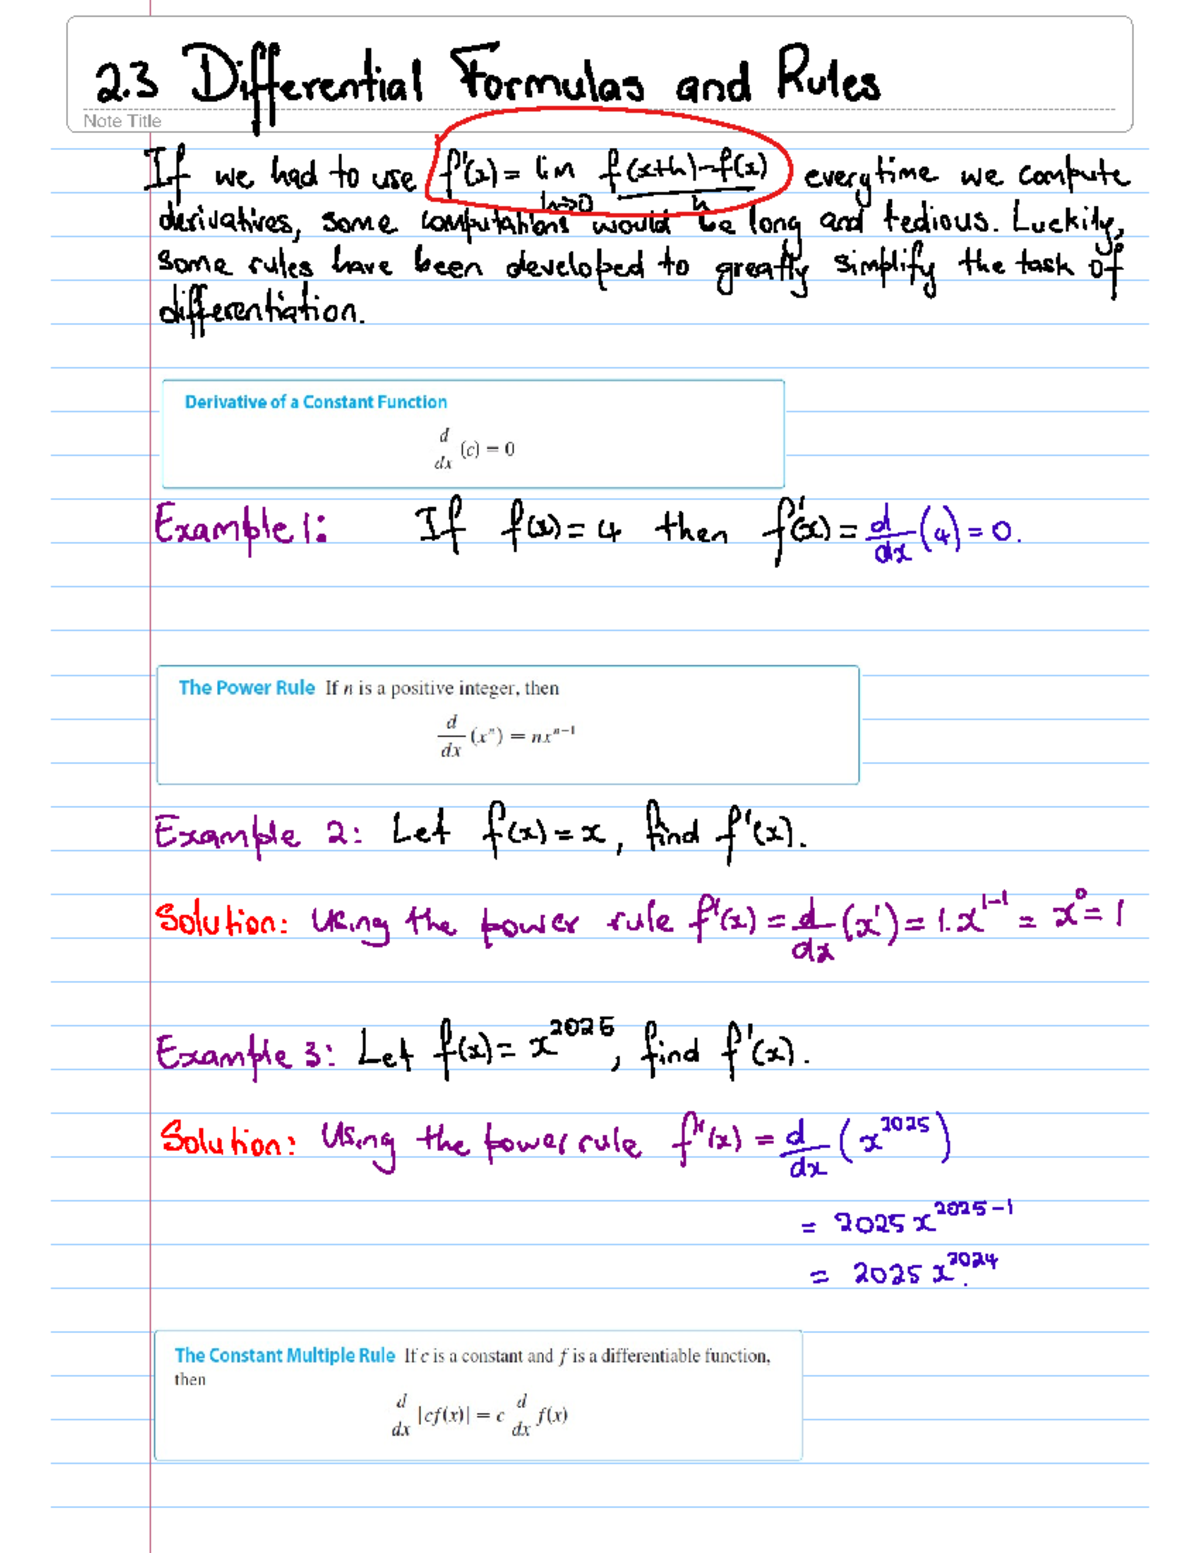 2.3 Differential Formulas and Rules
Note Title
If we had to use f'(x) = lim h→0 f(x+h)-f(x) / h everytime we compute
derivatives, some computations would be long and tedious. Luckily,
some rules have been developed to greatly simplify the task of
differentiation.
Derivative of a Constant Function
d/dx (c) = 0
Example 1: If f(x) = 4 then f'(x) = d/dx (4) = 0.
The Power Rule If n is a positive integer, then
d/dx (xⁿ) = nxⁿ⁻¹
Example 2: Let f(x) = x, find f'(x).
Solution: Using the power rule f'(x) = d/dx (x¹) = 1.x¹⁻¹ = x⁰ = 1
Example 3: Let f(x) = x²⁰²⁵, find f'(x).
Solution: Using the power rule f'(x) = d/dx (x²⁰²⁵)
= 2025 x²⁰²⁵⁻¹
= 2025 x²⁰²⁴.
The Constant Multiple Rule If c is a constant and f is a differentiable function,
then
d/dx |cf(x)| = c d/dx f(x)